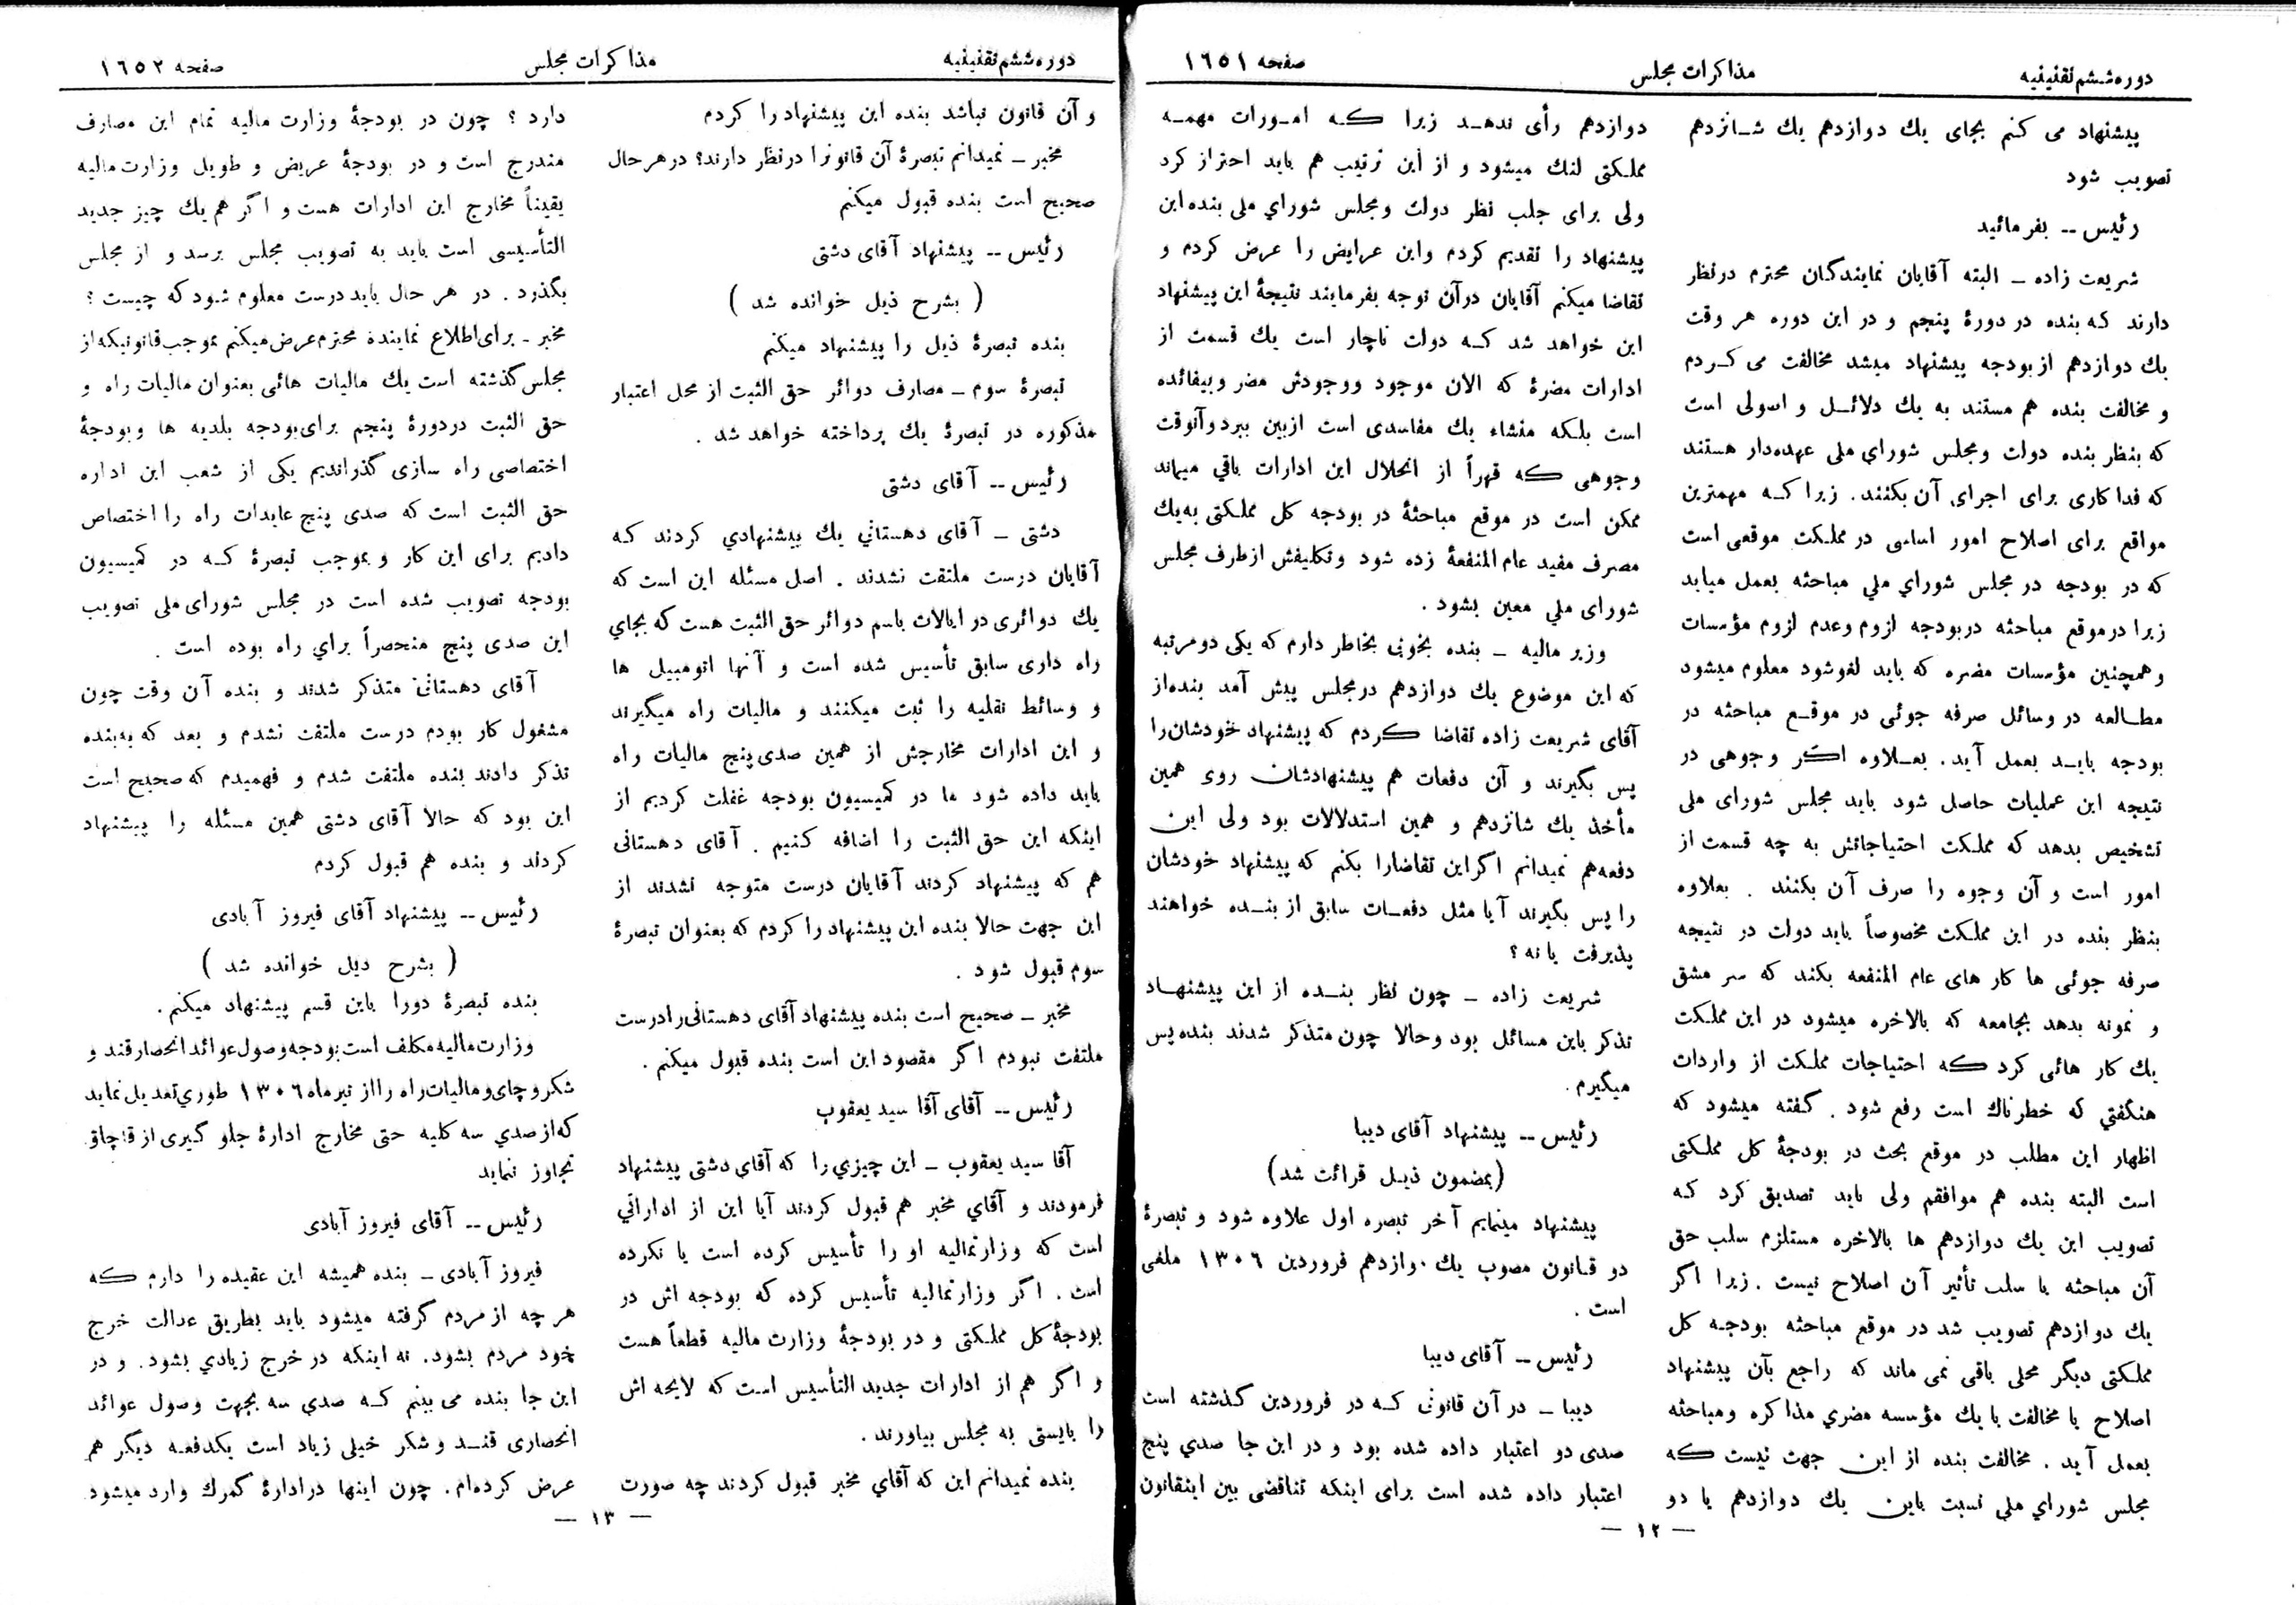 دوره ششم تقنینیه
مذاکرات مجلس
صفحه ١٦٥١
پیشنهاد می کنم بجای یك دوازدهم یك شـانزدهم
تصویب شود
رئیس -- بفرمائید
شریعت زاده ـ البته آقایان نمایندگان محترم درنظر
دارند که بنده در دورهٔ پنجم و در این دوره هر وقت
یك دوازدهم از بودجه پیشنهاد میشد مخالفت می کـردم
و مخالفت بنده هم مستند به یك دلائـل و اصولی است
که بنظر بنده دولت ومجلس شورای ملی عهده‌دار هستند
که فداکاری برای اجرای آن بکنند. زیرا کـه مهمترین
مواقع برای اصلاح امور اساسی در مملکت موقعی است
که در بودجه در مجلس شورای ملی مباحثه بعمل میاید
زیرا درموقع مباحثه دربودجه لزوم وعدم لزوم مؤسسات
وهمچنین مؤسسات مضره که باید لغوشود معلوم میشود
مطـالعه در وسائل صرفه جوئی در موقـع مباحثه در
بودجه بایـد بعمل آید. بعـلاوه اگر وجوهی در
نتیجه این عملیات حاصل شود باید مجلس شورای ملی
تشخیص بدهد که مملکت احتیاجاتش به چه قسمت از
امور است و آن وجوه را صرف آن بکنند . بعلاوه
بنظر بنده در این مملکت مخصوصاً باید دولت در نتیجه
صرفه جوئی ها کار های عام المنفعه بکند که سر مشق
و نمونه بدهد بجامعه که بالاخره میشود در این مملکت
یك کار هائی کرد که احتیاجات مملکت از واردات
هنگفتی که خطرناك است رفع شود . گفته میشود که
اظهار این مطلب در موقع بحث در بودجهٔ کل مملکتی
است البته بنده هم موافقم ولی باید تصدیق کرد کـه
تصویب این یك دوازدهم ها بالاخره مستلزم سلب حق
آن مباحثه یا سلب تأثیر آن اصلاح نیست . زیرا اگر
یك دوازدهم تصویب شد در موقع مباحثه بودجـه کل
مملکتی دیگر محلی باقی نمی ماند که راجع بآن پیشنهاد
اصلاح یا مخالفت با یك مؤسسه مضری مذاکره ومباحثه
بعمل آید . مخالفت بنده از این جهت نیست که
مجلس شورای ملی نسبت باین یك دوازدهم یا دو
دوازدهم رأی ندهـد زیرا کـه امـورات مهمـه
مملکتی لنك میشود و از این ترتیب هم باید احتراز کرد
ولی برای جلب نظر دولت ومجلس شورای ملی بنده این
پیشنهاد را تقدیم کردم واین عرایض را عرض کردم و
تقاضا میکنم آقایان درآن توجه بفرمایند نتیجهٔ این پیشنهاد
این خواهد شد کـه دولت ناچار است یك قسمت از
ادارات مضرهٔ که الان موجود ووجودش مضر وبیفائده
است بلکه منشاء یك مفاسدی است ازبین ببرد وآنوقت
وجوهی که قهراً از انحلال این ادارات باقی میماند
ممکن است در موقع مباحثهٔ در بودجه کل مملکتی به‌یك
مصرف مفید عام المنفعهٔ زده شود وتکلیفش ازطرف مجلس
شورای ملی معین بشود .
وزیر مالیه ـ بنده بخوبی بخاطر دارم که یکی دو مرتبه
که این موضوع یك دوازدهم درمجلس پیش آمد بنده‌از
آقای شریعت زاده تقاضا کردم که پیشنهاد خودشان‌را
پس بگیرند و آن دفعات هم پیشنهادشان روی همین
مأخذ یك شانزدهم و همین استدلالات بود ولی این
دفعه‌هم نمیدانم اگر این تقاضارا بکنم که پیشنهاد خودشان
را پس بگیرند آیا مثل دفعـات سابق از بنـده خواهند
پذیرفت یا نه ؟
شریعت زاده ـ چون نظر بنـده از این پیشنهـاد
تذکر باین مسائل بود وحالا چون متذکر شدند بنده پس
میگیرم .
رئیس -- پیشنهاد آقای دیبا
(بمضمون ذیـل قرائت شد)
پیشنهاد مینمایم آخر تبصره اول علاوه شود و تبصرهٔ
دو قـانون مصوب یك دوازدهم فروردین ١٣٠٦ ملغی
است .
رئیس -- آقای دیبا
دیبا ـ در آن قانونی کـه در فروردین گذشته است
صدی دو اعتبار داده شده بود و در این جا صدی پنج
اعتبار داده شده است برای اینکه تناقضی بین اینقانون
— ١٢ —
دوره ششم تقنینیه
مذاکرات مجلس
صفحه ١٦٥٢
و آن قانون نباشد بنده این پیشنهاد را کردم
مخبر ـ نمیدانم تبصرهٔ آن قانونرا درنظر دارند؟ درهرحال
صحیح است بنده قبول میکنم
رئیس -- پیشنهاد آقای دشتی
( بشرح ذیل خوانده شد )
بنده تبصرهٔ ذیل را پیشنهاد میکنم
تبصرهٔ سوم ـ مصارف دوائر حق الثبت از محل اعتبار
مذکوره در تبصرهٔ یك پرداخته خواهد شد .
رئیس -- آقای دشتی
دشتی ـ آقای دهستانی یك پیشنهادی کردند کـه
آقایان درست ملتفت نشدند . اصل مسئله این است که
یك دوائری در ایالات باسم دوائر حق الثبت هست که بجای
راه داری سابق تأسیس شده است و آنها اتومبیل ها
و وسائط نقلیه را ثبت میکنند و مالیات راه میگیرند
و این ادارات مخارجش از همین صدی پنج مالیات راه
باید داده شود ما در کمیسیون بودجه غفلت کردیم از
اینکه این حق الثبت را اضافه کنیم . آقای دهستانی
هم که پیشنهاد کردند آقایان درست متوجه نشدند از
این جهت حالا بنده این پیشنهاد را کردم که بعنوان تبصرهٔ
سوم قبول شود .
مخبر ـ صحیح است بنده پیشنهاد آقای دهستانی‌رادرست
ملتفت نبودم اگر مقصود این است بنده قبول میکنم .
رئیس -- آقای آقا سید یعقوب
آقا سید یعقوب ـ این چیزی را که آقای دشتی پیشنهاد
فرمودند و آقای مخبر هم قبول کردند آیا این از اداراتی
است که وزارتمالیه او را تأسیس کرده است یا نکرده
است . اگر وزارتمالیه تأسیس کرده که بودجه اش در
بودجهٔ کل مملکتی و در بودجهٔ وزارت مالیه قطعاً هست
و اگر هم از ادارات جدید التأسیس است که لایحه اش
را بایستی به مجلس بیاورند .
بنده نمیدانم این که آقای مخبر قبول کردند چه صورت
دارد ؟ چون در بودجهٔ وزارت مالیه تمام این مصارف
مندرج است و در بودجهٔ عریض و طویل وزارت مالیه
یقیناً مخارج این ادارات هست و اگر هم یك چیز جدید
التأسیسی است باید به تصویب مجلس برسد و از مجلس
بگذرد . در هر حال باید درست معلوم شود که چیست ؟
مخبر ـ برای اطلاع نماینده محترم عرض میکنم بموجب قانونیکه از
مجلس گذشته است یك مالیات هائی بعنوان مالیات راه و
حق الثبت دردورهٔ پنجم برای بودجه بلدیه ها و بودجهٔ
اختصاصی راه سازی گذراندیم یکی از شعب این اداره
حق الثبت است که صدی پنج عایدات راه را اختصاص
دادیم برای این کار و بموجب تبصرهٔ کـه در کمیسیون
بودجه تصویب شده است در مجلس شورای ملی تصویب
این صدی پنج منحصراً برای راه بوده است .
آقای دهستانی متذکر شدند و بنده آن وقت چون
مشغول کار بودم درست ملتفت نشدم و بعد که به‌بنده
تذکر دادند بنده ملتفت شدم و فهمیدم که صحیح است
این بود که حالا آقای دشتی همین مسئله را پیشنهاد
کردند و بنده هم قبول کردم
رئیس -- پیشنهاد آقای فیروز آبادی
( بشرح ذیل خوانده شد )
بنده تبصرهٔ دورا باین قسم پیشنهاد میکنم .
وزارت مالیه مکلف است بودجه وصول عوائد انحصار قند و
شکر و چای و مالیات راه را از تیر ماه ١٣٠٦ طوری تعدیل نماید
که از صدی سه کلیه حتی مخارج ادارهٔ جلو گیری از قاچاق
تجاوز ننماید
رئیس -- آقای فیروز آبادی
فیروز آبادی ـ بنده همیشه این عقیده را دارم که
هر چه از مردم گرفته میشود باید بطریق عدالت خرج
خود مردم بشود . نه اینکه در خرج زیادی بشود . و در
این جا بنده می بینم کـه صدی سه بجهت وصول عوائد
انحصاری قنـد و شکر خیلی زیاد است یکدفعه دیگر هم
عرض کرده‌ام . چون اینها در ادارهٔ گمرك وارد میشود
— ١٣ —